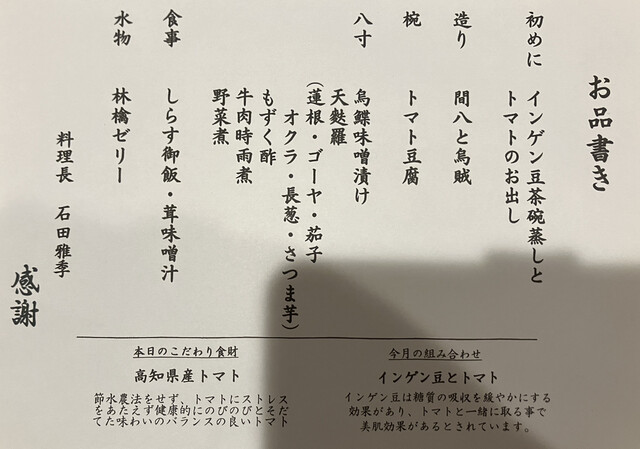 お品書き
初めに　インゲン豆茶碗蒸しと
トマトのお出し
造り　間八と烏賊
椀　トマト豆腐
八寸　烏鰈味噌漬け
天麩羅
（蓮根・ゴーヤ・茄子
オクラ・長葱・さつま芋）
もずく酢
牛肉時雨煮
野菜煮
食事　しらす御飯・茸味噌汁
水物　林檎ゼリー
料理長　石田雅季
感謝
今月の組み合わせ
インゲン豆とトマト
インゲン豆は糖質の吸収を緩やかにする
効果があり、トマトと一緒に取る事で
美肌効果があるとされています。
本日のこだわり食財
高知県産トマト
節水農法をせず、トマトにストレス
をあたえず健康的にのびのびとそだ
てた味わいのバランスの良いトマト